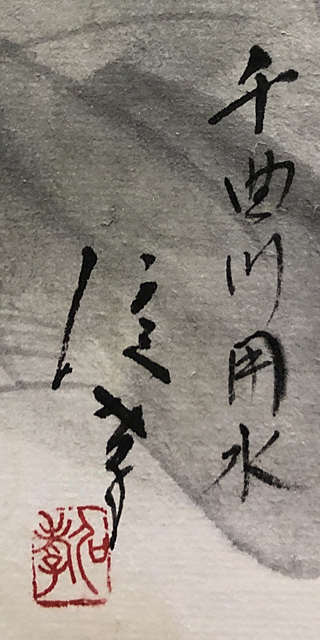 千曲川用水
信孝